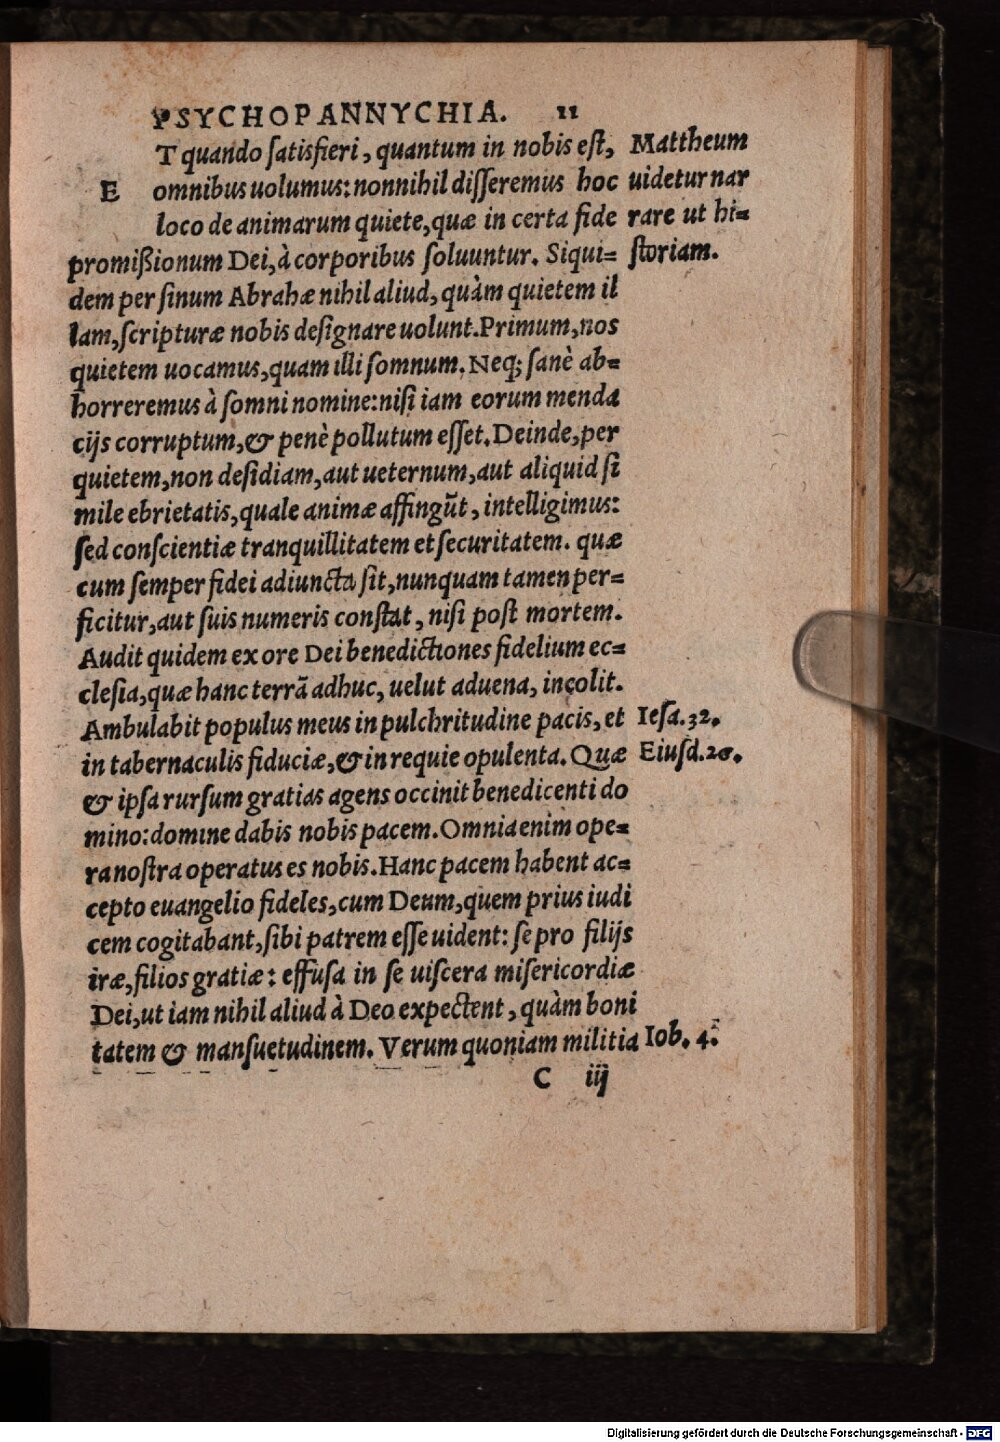 PSYCHOPANNYCHIA. 11
ET quando ſatisfieri, quantum in nobis eſt,
omnibus uolumus: nonnihil diſſeremus hoc
loco de animarum quiete, quæ in certa fide
promiſsionum Dei, à corporibus ſoluuntur. Siqui=
dem per ſinum Abrahæ nihil aliud, quàm quietem il
lam, ſcripturæ nobis deſignare uolunt. Primum, nos
quietem uocamus, quam illi ſomnum. Neq; ſanè ab=
horreremus à ſomni nomine: niſi iam eorum menda
cijs corruptum, & penè pollutum eſſet. Deinde, per
quietem, non deſidiam, aut ueternum, aut aliquid ſi
mile ebrietatis, quale animæ affingũt, intelligimus:
ſed conſcientiæ tranquillitatem et ſecuritatem. quæ
cum ſemper fidei adiuncta ſit, nunquam tamen per=
ficitur, aut ſuis numeris conſtat, niſi poſt mortem.
Audit quidem ex ore Dei benedictiones fidelium ec=
cleſia, quæ hanc terrã adhuc, uelut aduena, incolit.
Ambulabit populus meus in pulchritudine pacis, et
in tabernaculis fiduciæ, & in requie opulenta. Quæ
& ipſa rurſum gratias agens occinit benedicenti do
mino: domine dabis nobis pacem. Omnia enim ope=
ra noſtra operatus es nobis. Hanc pacem habent ac=
cepto euangelio fideles, cum Deum, quem prius iudi
cem cogitabant, ſibi patrem eſſe uident: ſe pro filijs
iræ, filios gratiæ: effuſa in ſe uiſcera miſericordiæ
Dei, ut iam nihil aliud à Deo expectent, quàm boni
tatem & manſuetudinem. Verum quoniam militia
C iij
Mattheum
uidetur nar
rare ut hi=
ſtoriam.
Ieſa. 32.
Eiuſd. 26.
Iob. 4.
Digitalisierung gefördert durch die Deutsche Forschungsgemeinschaft - DFG